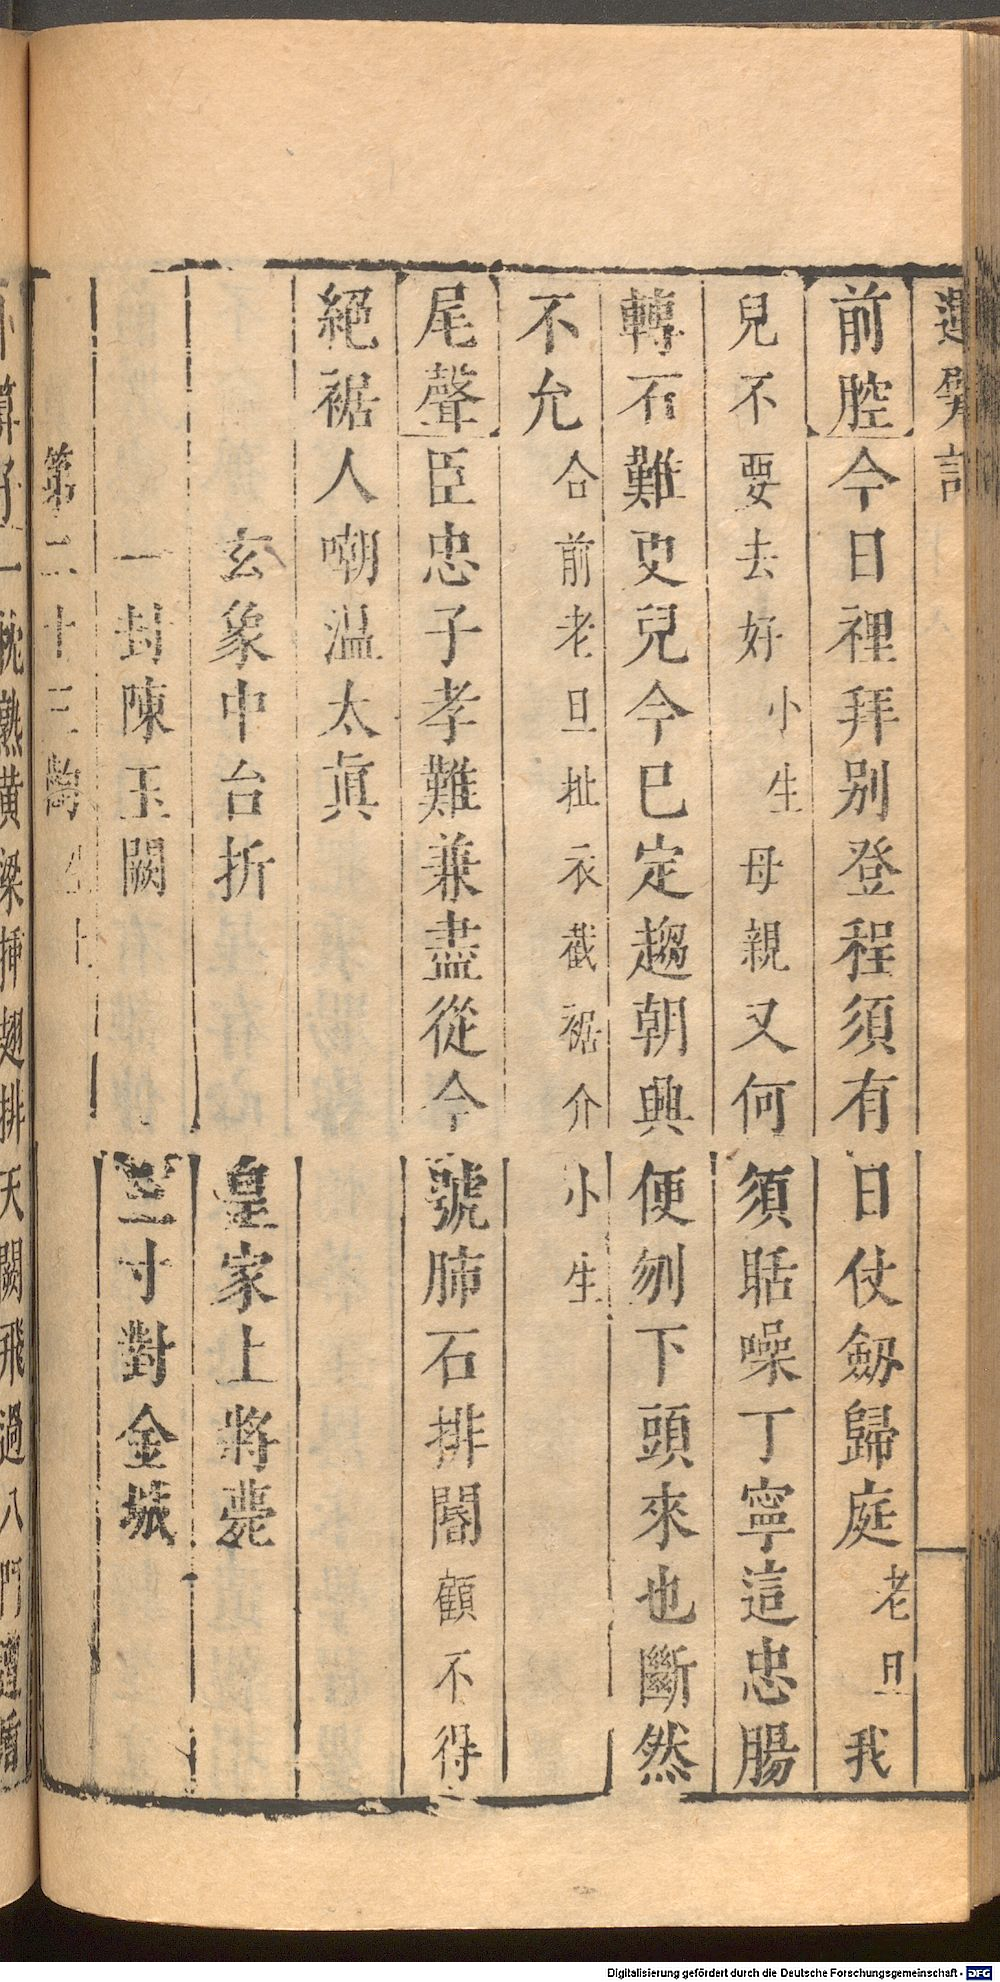 前腔今日裡拜别登程須有日仗劒歸庭老旦我
兒不要去好小生母親又何須聒噪丁寧這忠腸
轉石難更兒今已定趨朝興便刎下頭來也斷然
不允合前老旦扯衣截裾介小生
尾聲臣忠子孝難兼盡從今號肺石排閽顧不得
絕裾人嘲温太眞
玄象中台折皇家上將薨
一封陳玉闕三寸對金城
第二十三齣
枕熟黄粱揷翅排天闕飛過八門
Digitalisierung gefördert durch die Deutsche Forschungsgemeinschaft - DFG